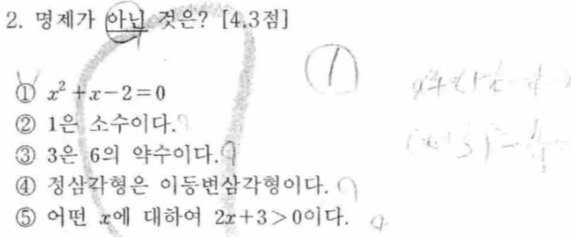 2. 명제가 아닌 것은? [4.3점]
① x² + x - 2 = 0
② 1은 소수이다.
③ 3은 6의 약수이다.
④ 정삼각형은 이등변삼각형이다.
⑤ 어떤 x에 대하여 2x+3>0이다.
①